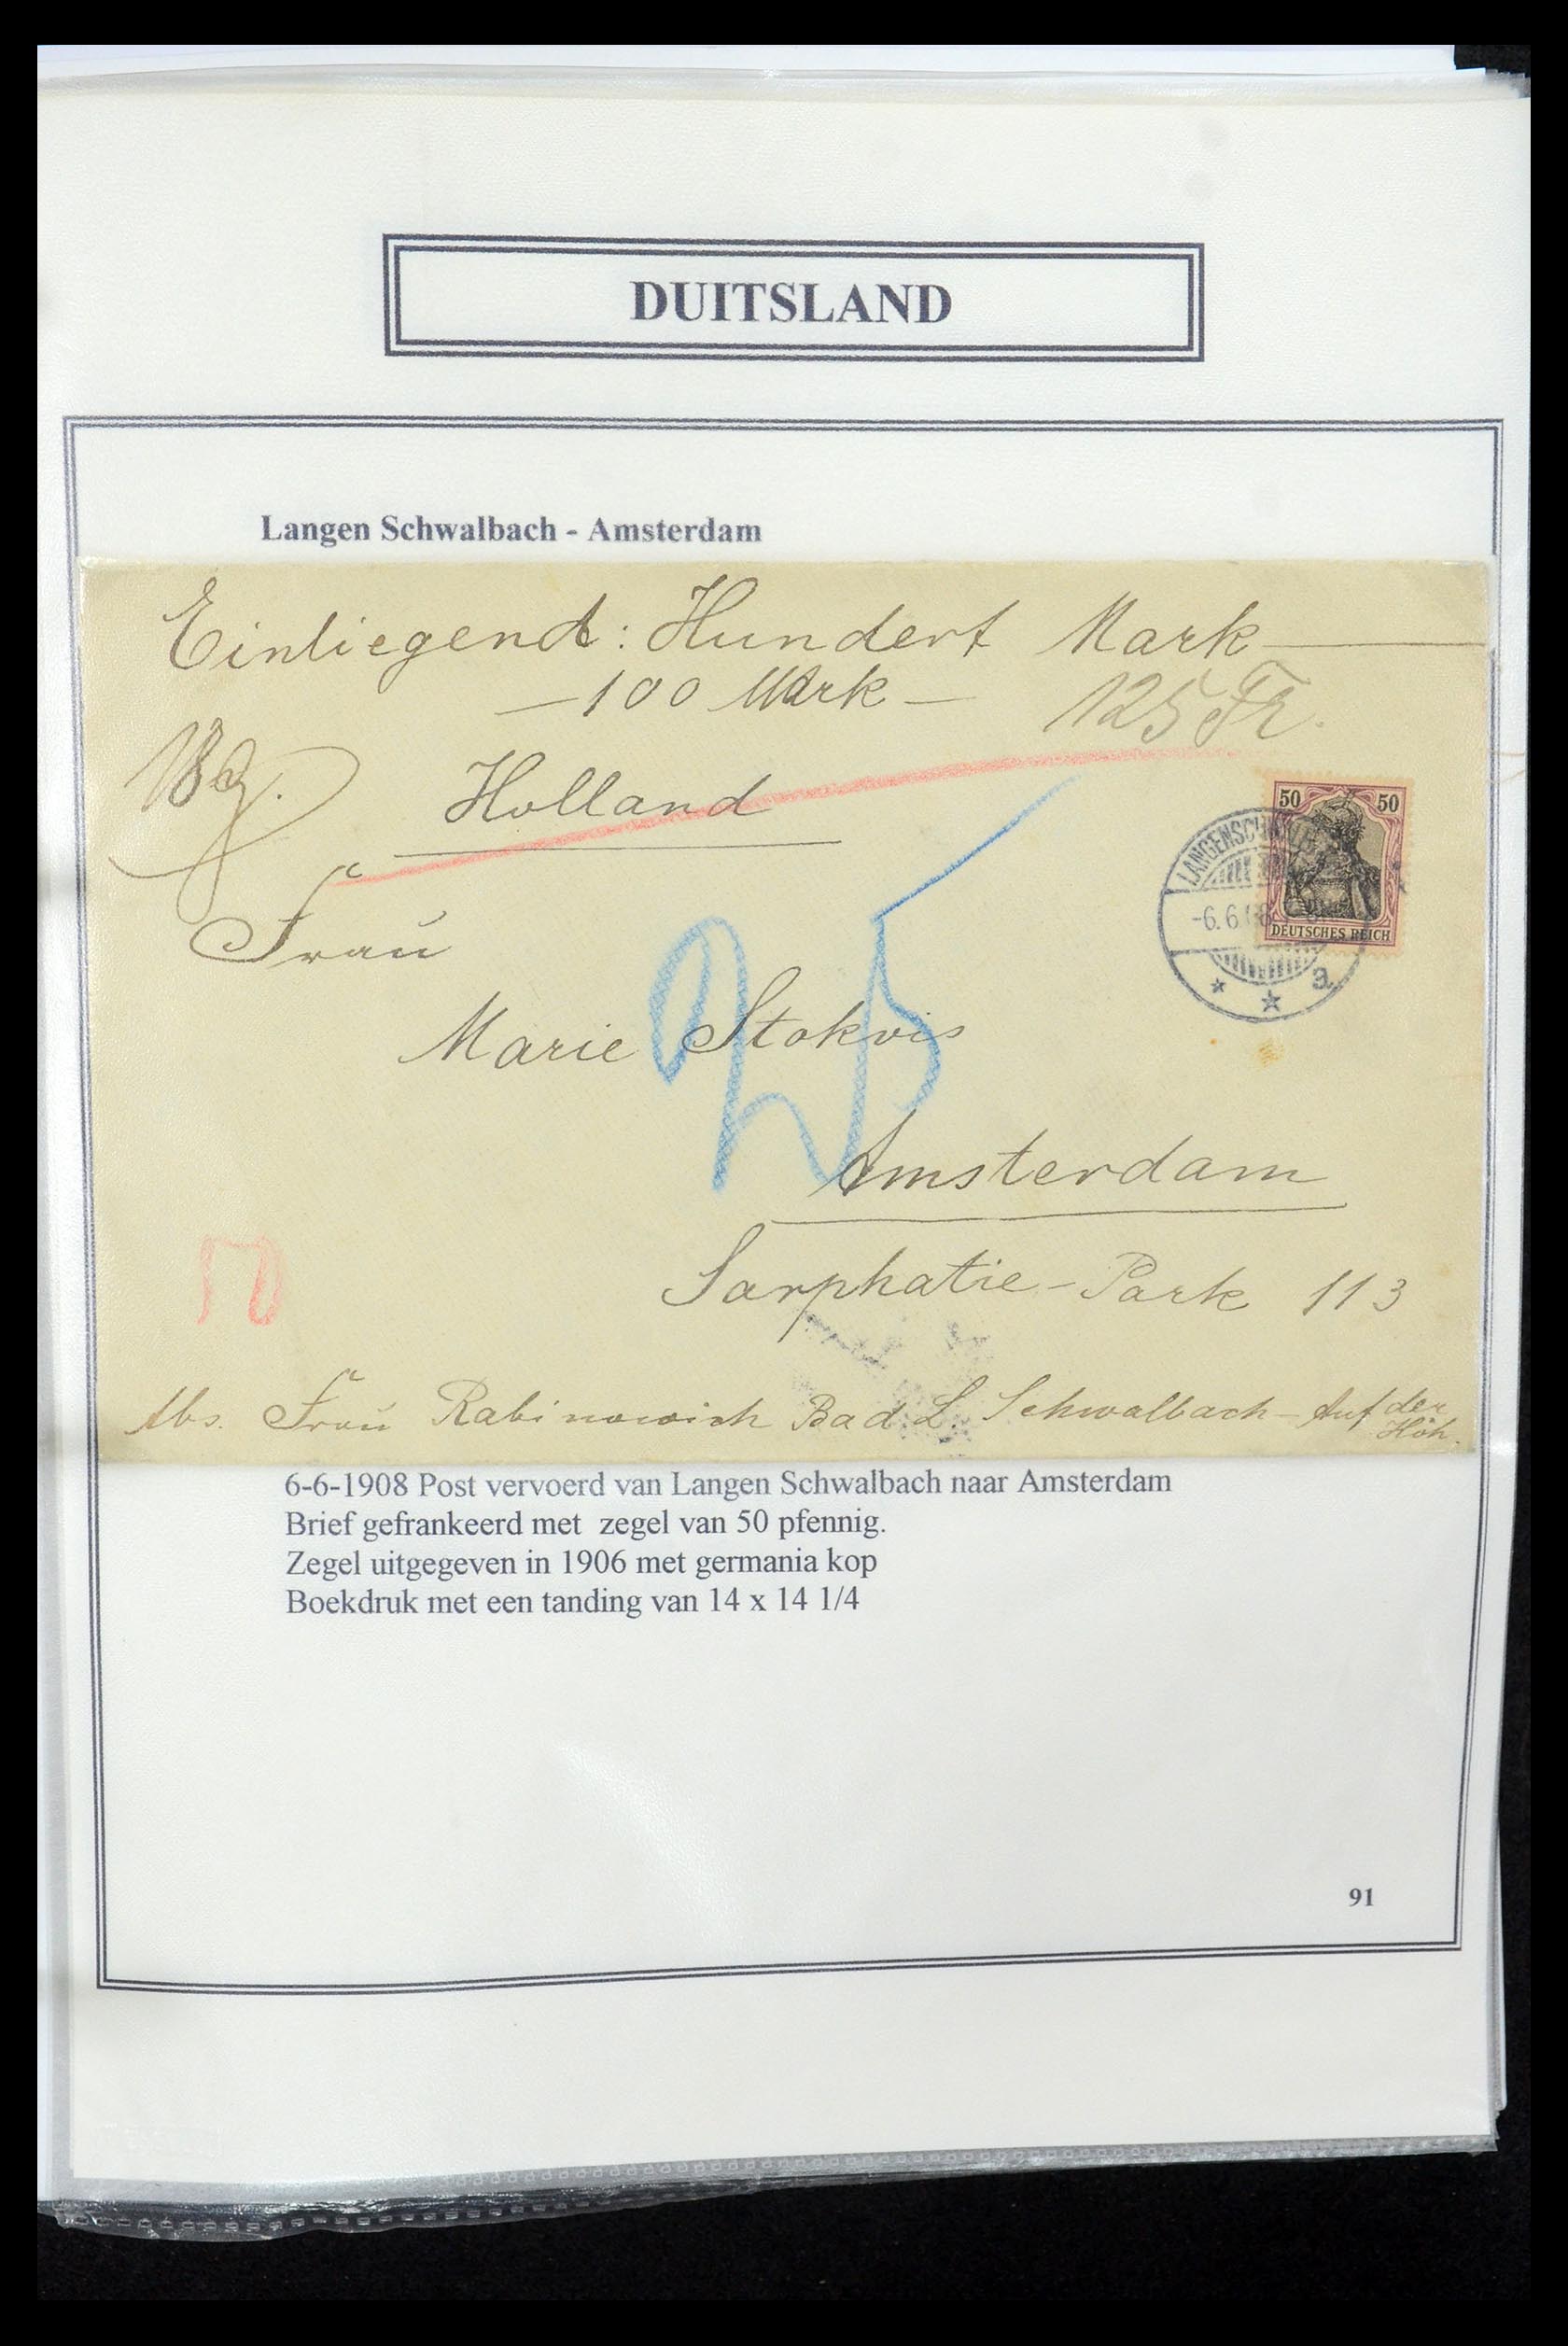 DUITSLAND
Langen Schwalbach - Amsterdam
Einliegend: Hundert Mark
- 100 Mark -
125 Fr.
Holland
50 50
DEUTSCHES REICH
-6.6.
a
Frau
Marie Stokvis
25
Amsterdam
Sarphatie-Park 113
Abs. Frau Rabinowich Bad L. Schwalbach - Auf der
Höh.
6-6-1908 Post vervoerd van Langen Schwalbach naar Amsterdam
Brief gefrankeerd met zegel van 50 pfennig.
Zegel uitgegeven in 1906 met germania kop
Boekdruk met een tanding van 14 x 14 1/4
91